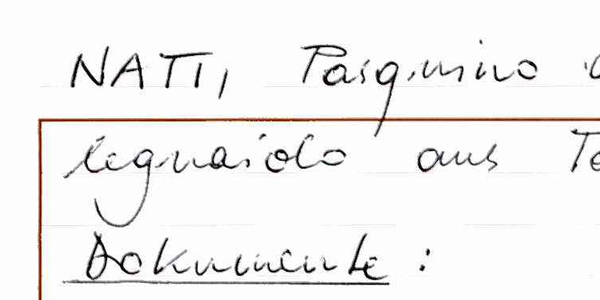 NATI, Pasquino
legnaiolo aus
Dokumente: